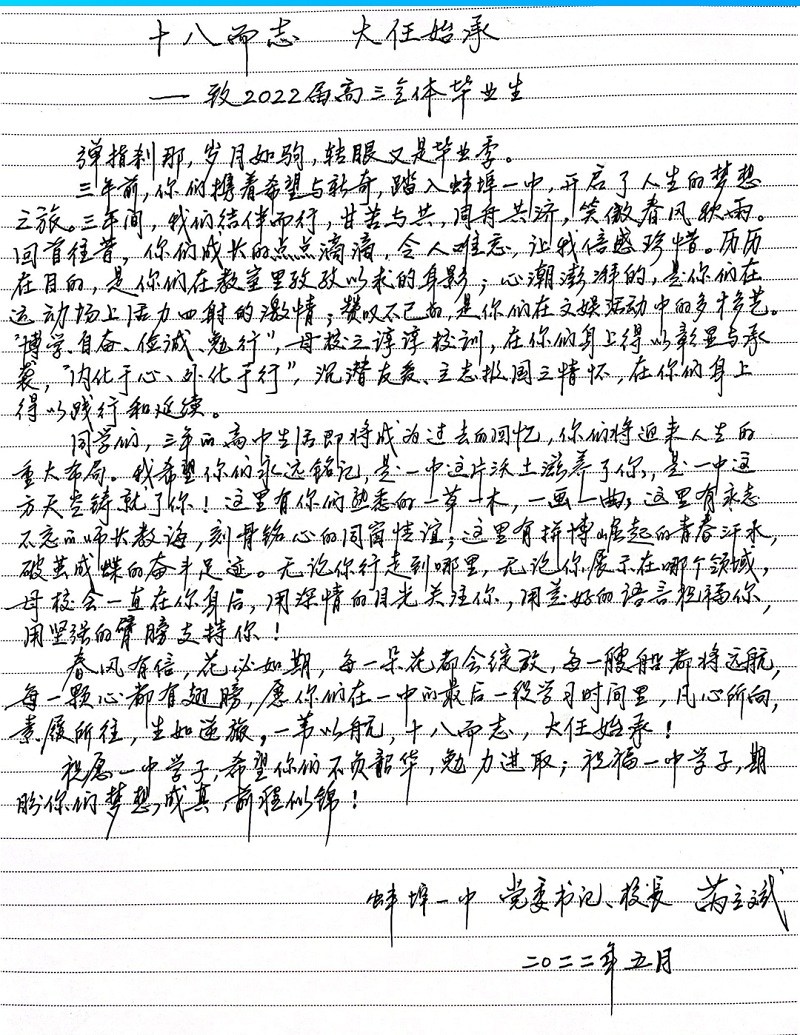 十八而志 大任始承
——致2022届高三全体毕业生
弹指刹那,岁月如驹,转眼又是毕业季。
三年前,你们携着希望与新奇,踏入蚌埠一中,开启了人生的梦想
之旅。三年间,我们结伴而行,甘苦与共,同舟共济,笑傲春风秋雨。
回首往昔,你们成长的点点滴滴,令人难忘,让我倍感珍惜。历历
在目的,是你们在教室里孜孜以求的身影;心潮澎湃的,是你们在
运动场上活力四射的激情;赞叹不已的,是你们在文娱活动中的多才多艺。
“博学、自奋、俭诚、勉行”,母校之谆谆校训,在你们身上得以彰显与承
袭,“内化于心、外化于行”,沉潜友爱、立志报国之情怀,在你们身上
得以践行和延续。
同学们,三年的高中生活即将成为过去的回忆,你们将迎来人生的
重大布局。我希望你们永远铭记,是一中这片沃土滋养了你,是一中这
方天空铸就了你!这里有你们熟悉的一草一木,一画一曲;这里有永志
不忘的师长教诲,刻骨铭心的同窗情谊;这里有拼搏崛起的青春汗水,
破茧成蝶的奋斗足迹。无论你行走到哪里,无论你展示在哪个领域,
母校会一直在你身后,用深情的目光关注你,用美好的语言祝福你,
用坚强的臂膀支持你!
春风有信,花必如期,每一朵花都会绽放,每一艘船都将远航,
每一颗心都有翅膀,愿你们在一中的最后一段学习时间里,凡心所向,
素履所往,生如逆旅,一苇以航,十八而志,大任始承!
祝愿一中学子,希望你们不负韶华,勉力进取;祝福一中学子,期
盼你们梦想成真,前程似锦!
蚌埠一中 党委书记、校长 立斌
二〇二二年五月